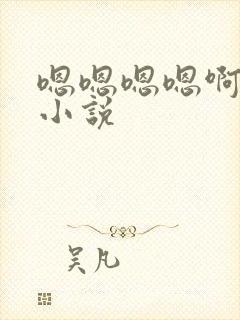 嗯嗯嗯嗯啊
小説
吴凡